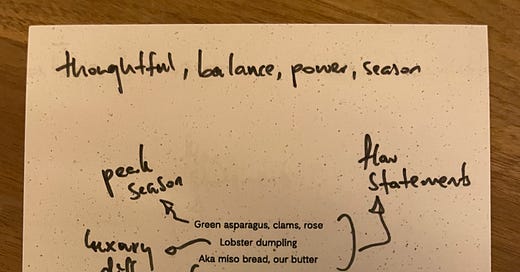 thoughtful, balance, power, season
peak season
flav statements
Green asparagus, clams, rose
luxury
Lobster dumpling
Aka miso bread, our butter